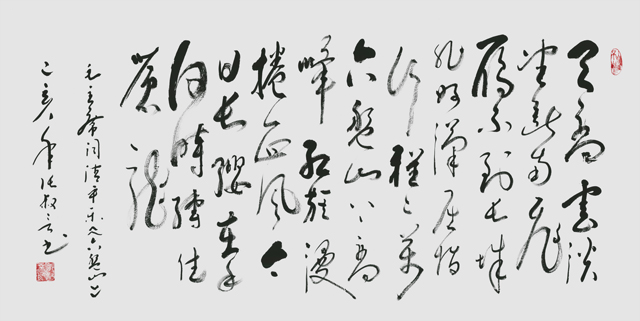 天高雲淡
望断南飞
雁不到长城
非好漢屈指
行程二万
六盘山上高
峰红旗漫
捲西风今
日长缨在手
何时缚住
苍龙
毛主席词清平乐六盘山
己亥年书